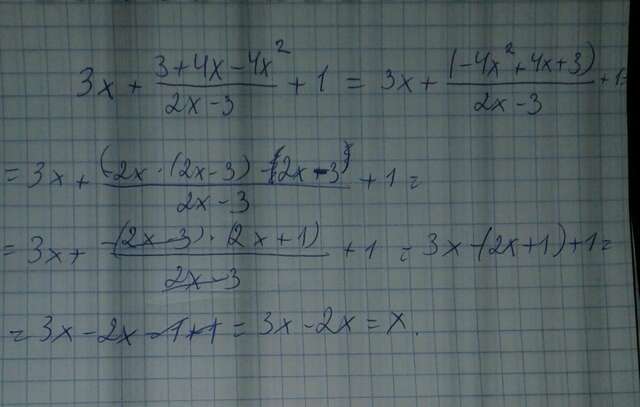 3x + (3+4x-4x²)/(2x-3) + 1 = 3x + (-4x²+4x+3)/(2x-3) + 1 =
= 3x + (-2x·(2x-3) - (2x-3))/(2x-3) + 1 =
= 3x + (-(2x-3)·(2x+1))/(2x-3) + 1 = 3x-(2x+1)+1 =
= 3x-2x-1+1 = 3x-2x = x.